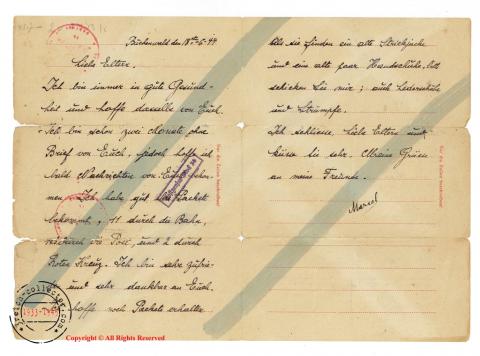 Buchenwald den 18-6-44
Liebe Eltern.
Ich bin immer in gute Gesund-
heit und hoffe dasselbe von Euch.
Ich bin schon zwei Monate ohne
Brief von Euch, jedoch hoffe ich
bald Nachrichten von Euch
men. Ich habe gut die Packete
bekommt, 11 durch die Bahn,
durch die Post, und 2 durch
Roten Kreuz. Ich bin sehr zufrie-
und sehr dankbar an Euch.
hoffe noch Packete erhalten
Als sie finden ein alte Strickjacke
und ein alte paar Handschühe, bitte
schicken Sie mir; auch Lederschühe
und Strümpfe.
Ich schliesse, Liebe Eltern und
küsse Sie sehr. Meine Grüsse
an meine Freunde.
Marcel
1933-1945
Copyright © All Rights Reserved